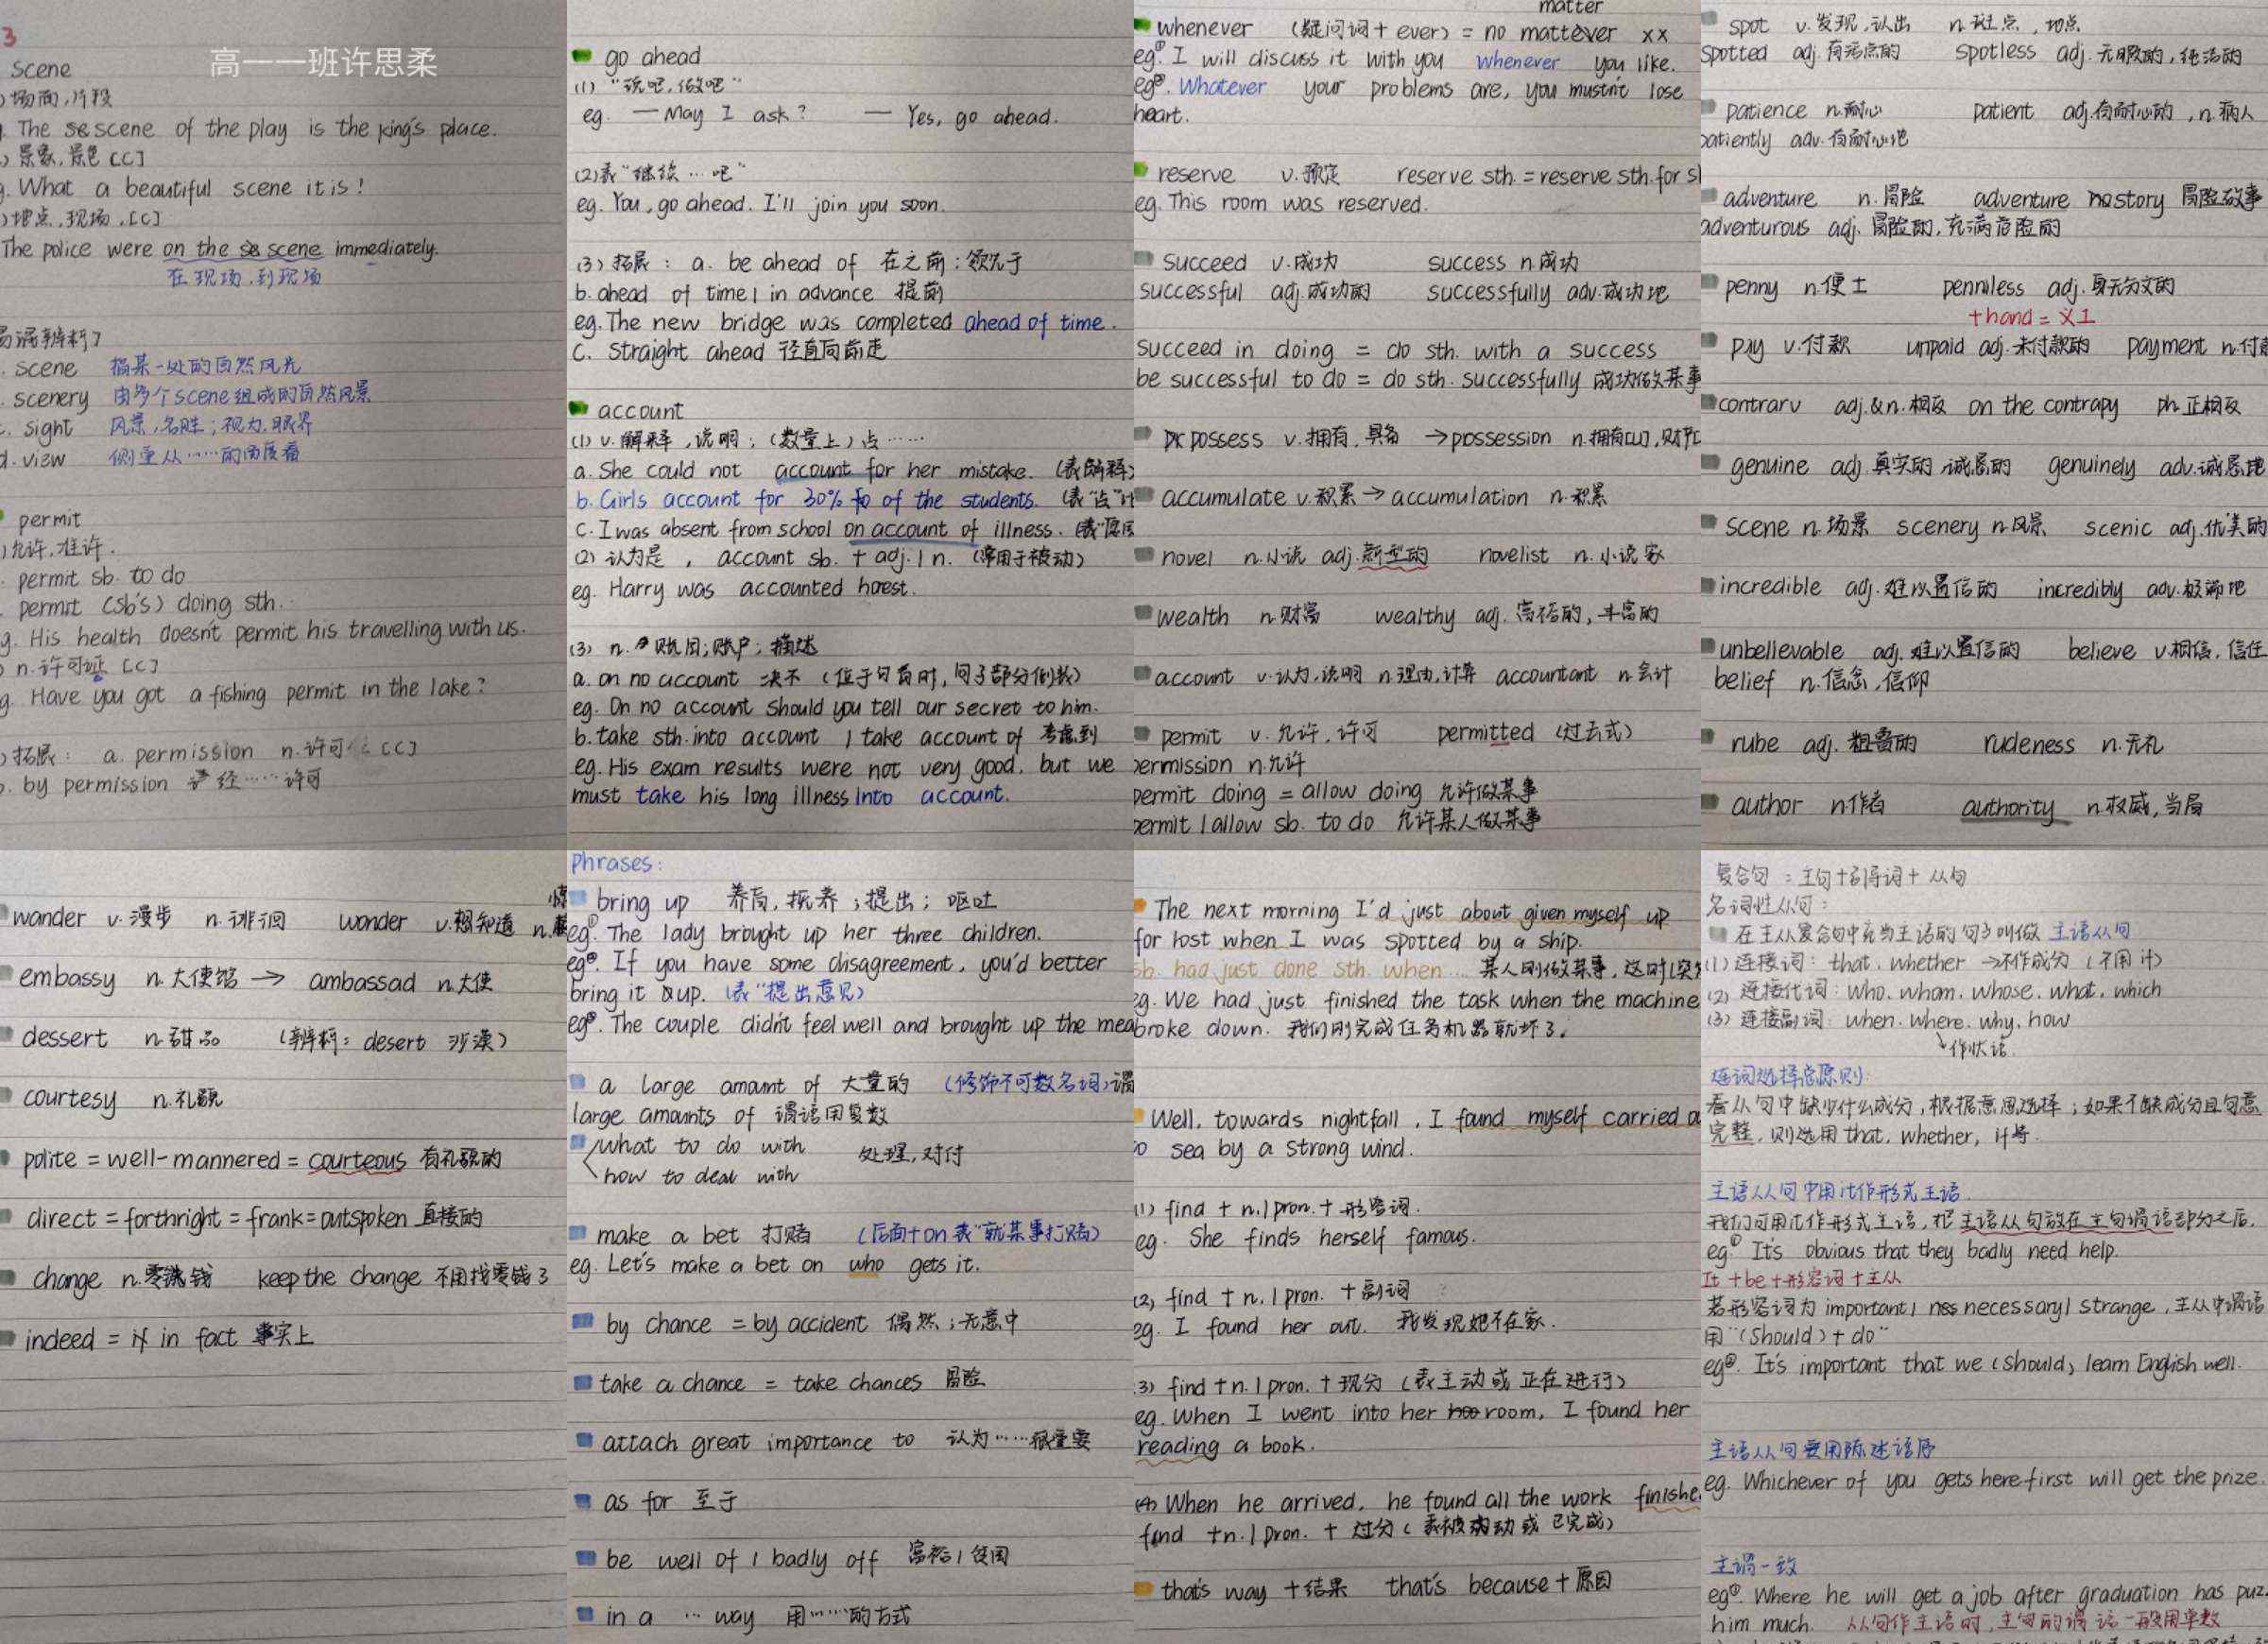 高一一班许思柔
3
scene
场面,片段
The scene of the play is the king's place.
景象,景色 [C]
What a beautiful scene it is!
地点,现场,[C]
The police were on the scene immediately.
在现场,到现场
易混辨析
scene 指某一处的自然风光
scenery 由多个scene组成的自然风景
sight 风景,名胜;视力,眼界
d. view 侧重从……的角度看
permit
允许,准许.
permit sb. to do
permit (sb's) doing sth.
g. His health doesn't permit his travelling with us.
n.许可证 [C]
g. Have you got a fishing permit in the lake?
拓展: a. permission n.许可 [C]
by permission 经……许可
go ahead
(1) "说吧,做吧"
eg. — May I ask? — Yes, go ahead.
(2)表"继续…吧"
eg. You, go ahead. I'll join you soon.
(3)拓展: a. be ahead of 在之前;领先于
b. ahead of time / in advance 提前
eg. The new bridge was completed ahead of time.
c. straight ahead 径直向前走
account
(1) v.解释,说明;(数量上)占……
a. She could not account for her mistake. (表解释)
b. Girls account for 30% of the students. (表"占"
c. I was absent from school on account of illness.
(2) 认为是, account sb. + adj. / n. (常用于被动)
eg. Harry was accounted honest.
(3) n. 账目;账户;描述
a. on no account 决不 (位于句首时,句子部分倒装)
eg. On no account should you tell our secret to him.
b. take sth. into account / take account of 考虑到
eg. His exam results were not very good, but we
must take his long illness into account.
matter
whenever (疑问词+ever) = no mattever xx
eg.① I will discuss it with you whenever you like.
eg②. Whatever your problems are, you mustn't lose
heart.
reserve v.预定 reserve sth. = reserve sth. for
eg. This room was reserved.
succeed v.成功 success n.成功
successful adj.成功的 successfully adv.成功地
succeed in doing = do sth. with a success
be successful to do = do sth. successfully 成功做某事
possess v.拥有,具备 →possession n.拥有[U],财产
accumulate v.积累→accumulation n.积累
novel n.小说 adj.新型的 novelist n.小说家
wealth n.财富 wealthy adj.富裕的,丰富的
account v.认为,说明 n.理由,计算 accountant n.会计
permit v.允许,许可 permitted (过去式)
permission n.允许
permit doing = allow doing 允许做某事
permit / allow sb. to do 允许某人做某事
spot v.发现,认出 n.斑点,地点
spotted adj.有污点的 spotless adj.无暇的,纯洁的
patience n.耐心 patient adj.有耐心的,n.病人
patiently adv.有耐心地
adventure n.冒险 adventure story 冒险故事
adventurous adj.冒险的,充满危险的
penny n.便士 penniless adj.身无分文的
+hand = 义工
pay v.付款 unpaid adj.未付款的 payment n.付款
contrary adj.&n.相反 on the contrapy ph.正相反
genuine adj.真实的,诚恳的 genuinely adv.诚恳地
scene n.场景 scenery n.风景 scenic adj.优美的
incredible adj.难以置信的 incredibly adv.极端地
unbellevable adj.难以置信的 believe v.相信,信任
belief n.信念,信仰
rube adj.粗鲁的 rudeness n.无礼
author n.作者 authority n.权威,当局
wander v.漫步 n.徘徊 wonder v.想知道 n.
embassy n.大使馆 → ambassad n.大使
dessert n.甜品 (辨析: desert 沙漠)
courtesy n.礼貌
polite = well-mannered = courteous 有礼貌的
direct = forthright = frank = outspoken 直接的
change n.零钱 keep the change 不用找零钱了
indeed = in fact 事实上
phrases:
bring up 养育,抚养;提出;呕吐
eg.① The lady brought up her three children.
eg②. If you have some disagreement, you'd better
bring it up. (表"提出意见)
eg③. The couple didn't feel well and brought up the mea
a large amount of 大量的 (修饰不可数名词)谓
large amounts of 谓语用复数
what to do with
处理,对付
how to deal with
make a bet 打赌 (后面+on 表"就某事打赌)
eg. Let's make a bet on who gets it.
by chance = by accident 偶然;无意中
take a chance = take chances 冒险
attach great importance to 认为……很重要
as for 至于
be well of / badly off 富裕/贫困
in a … way 用……的方式
The next morning I'd just about given myself up
for lost when I was spotted by a ship.
sb. had just done sth. when… 某人刚做某事,这时(突
eg. We had just finished the task when the machine
broke down. 我们刚完成任务机器就坏了.
Well, towards nightfall, I found myself carried o
to sea by a strong wind.
(1) find + n. / pron. + 形容词.
eg. She finds herself famous.
(2) find + n. / pron. + 副词
eg. I found her out. 我发现她不在家.
(3) find + n. / pron. + 现分 (表主动或正在进行)
eg. When I went into her room, I found her
reading a book.
(4) When he arrived, he found all the work finishe
find + n. / pron. + 过分 (表被动或已完成)
that's way + 结果 that's because + 原因
复合句 = 主句+引导词+从句
名词性从句:
在主从复合句中充当主语的句子叫做 主语从句
(1) 连接词: that, whether →不作成分 (不用if)
(2) 连接代词: who, whom, whose, what, which
(3) 连接副词: when, where, why, how
↘作状语.
连词选择总原则:
看从句中缺少什么成分,根据意思选择;如果不缺成分且句意
完整,则选用that, whether, if等.
主语从句中用it作形式主语.
我们可用it作形式主语,把主语从句放在主句谓语部分之后.
eg① It's obvious that they badly need help.
It + be + 形容词 + 主从
若形容词为important / necessary / strange,主从中谓语
用"(should) + do"
eg②. It's important that we (should) learn English well.
主语从句要用陈述语序
eg. Whichever of you gets here first will get the prize.
主谓一致
eg① Where he will get a job after graduation has puz
him much. 从句作主语时,主句的谓语一般用单数